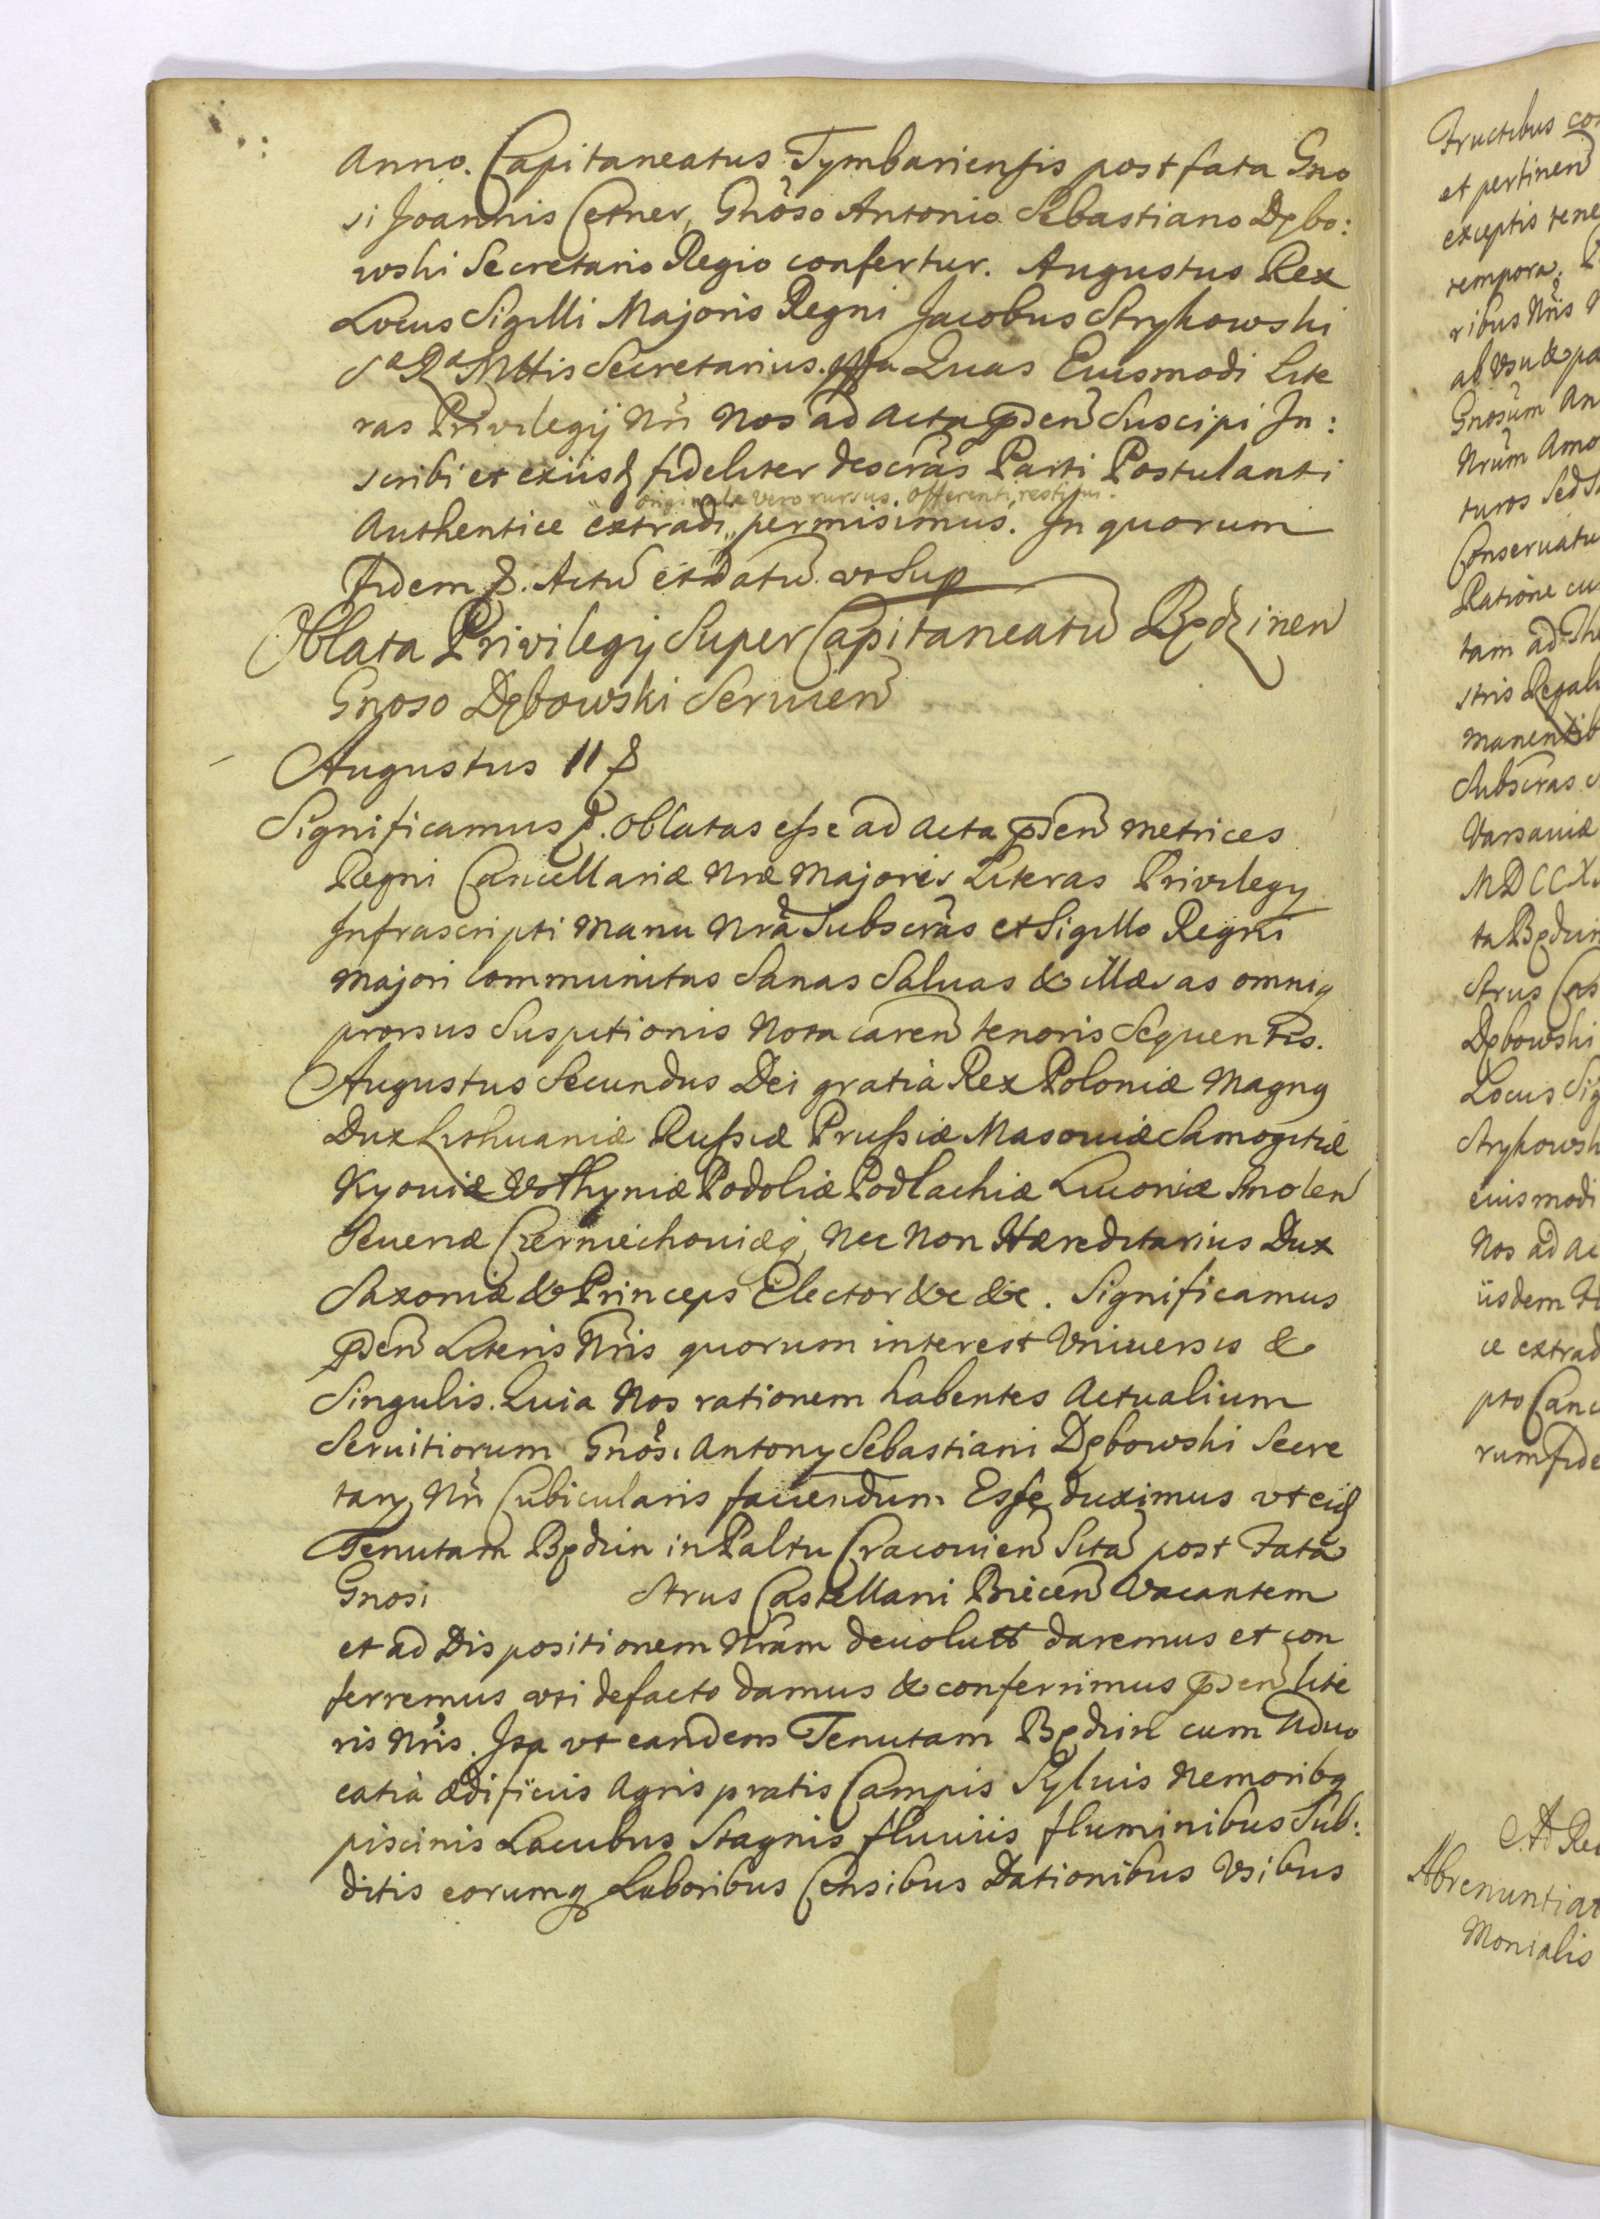 Anno. Capitaneatus Tymbariensis post fata Gno
si Joannis Cetner, Gnoso Antonio Sebastiano Dębo:
wski Secretario Regio confertur. Augustus Rex
Locus Sigilli Majoris Regni Jacobus Strykowski
Sa Ra Mttis Secretarius. Quas Eiusmodi Lite
ras Privilegij Nri Nos ad Acta pden Suscipi In:
scribi et exiisd fideliter descras Parti Postulanti
originale vero rursus offerenti restitui.
Authentice extradi permisimus. In quorum
Fidem &. Actũ et Datũ. vt Sup
Oblata Privilegij Super Capitaneatũ Będzinen
Gnoso Dębowski Servien
Augustus II &
Significamus &. Oblatas esse ad Acta pden Metrices
Regni Cancellariæ Nræ Majoris Literas Privilegy
Infrascripti Manu Nra Subscras et Sigillo Regni
Majori communitas Sanas Saluas & illæsas omniq
prorsus Suspitionis Nota caren tenoris Sequentis.
Augustus Secundus Dei gratia Rex Poloniæ Magnq
Dux Lithuaniæ Russiæ Prussiæ Masouiæ Samogitiæ
Kyouiæ Volhyniæ Podoliæ Podlachiæ Liuoniæ Smolen
Seueriæ Czerniechouiæq Nec Non Hæreditarius Dux
Saxoniæ & Princeps Elector &c &c. Significamus
pden Literis Nris quorum interest Vniuersis &
Singulis. Quia Nos rationem habentes Actualium
Seruitiorum Gnosi Antony Sebastiani Dębowski Secre
tary Nri Cubicularis fauendum Esse duximus vt eid
Tenutam Będzin in Paltu Cracouien Sita post Fata
Gnosi Strus Castellani Biecen Vacantem
et ad Dispositionem Nram deuolutt daremus et con
ferremus vti defacto damus & conferimus pden lite
ris Nris. Ita vt eandem Tenutam Będzin cum Aduo
catia ædificiis Agris pratis Campis Syluis Nemoribq
piscinis Lacubus Stagnis fluuiis fluminibus Sub:
ditis eorumq Laboribus Censibus Dationibus Vsibus
Fructibus
et pertinen
exceptis
tempora.
ribus Nris
ab vsu &
Gnosum An
Nrum
turos Sed
Conseruatu
Ratione
tam ad
stris Regali
manentib
Subscras
Varsauiæ
MDCCX
ta Będzin
Strus Cas
Dębowski
Locus Sig
Strykowsk
eiusmodi
Nos ad Ac
iisdem
ce extrad
pto Canc
rum fide
Ad Re
Abrenuntiat
Monialis